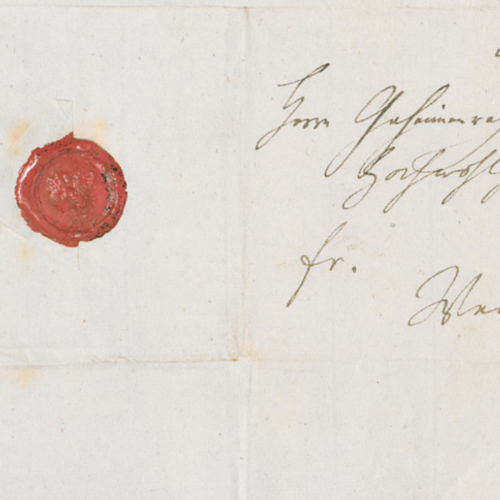 Herrn Geheimenra
Hochwohl
fr.
We